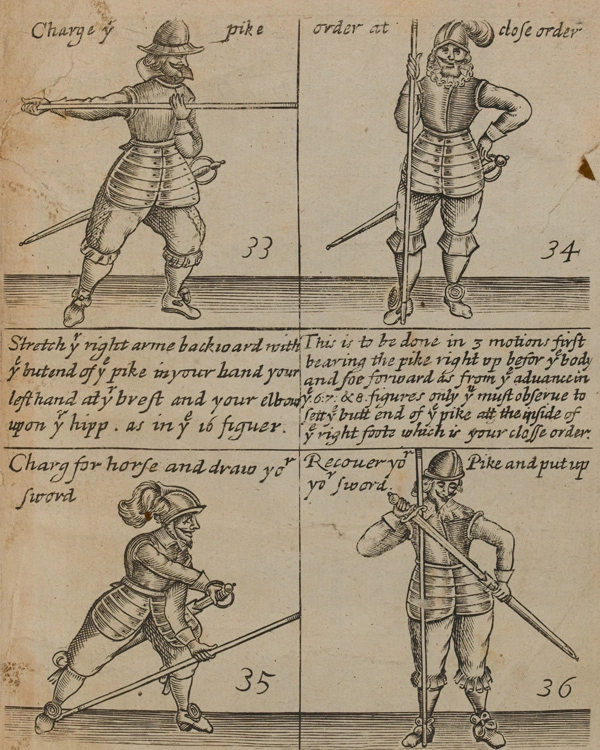 Charge yͤ pike
33
order at close order
34
Stretch yͬ right arme backward with
yͤ butend of yͤ pike in your hand your
left hand at yͬ brest and your elbow
upon yͬ hipp. as in yͤ 16 figuer.
This is to be done in 3 motions first
bearing the pike right vp befor yͤ body
and soe forward as from yͤ aduance in
yͤ.6.7. & 8. figures only yͧ must obserue to
sett yͤ butt end of yͤ pike att the inside of
yͬ right foote which is your closse order.
Charg for horse and draw yoͬ
sword
35
Recouer yoͬ Pike and put up
yoͬ sword.
36